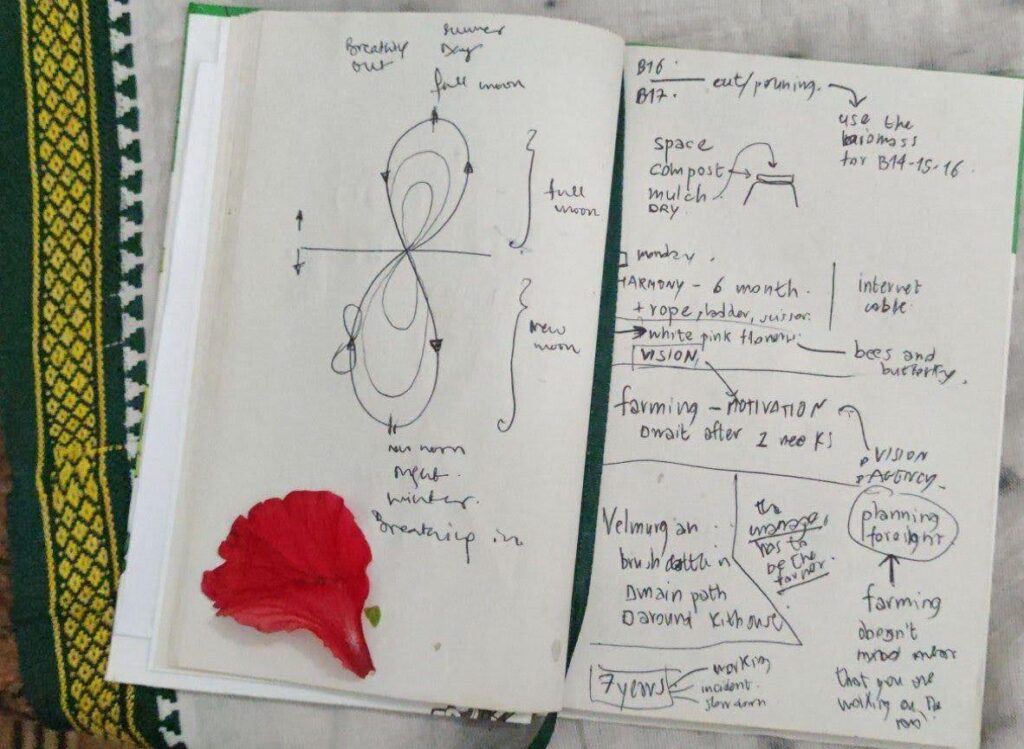 Breathing
out
Summer
Day
full moon
full
moon
new
moon
moon
Night
winter.
Breathing in
B16
B17.
cut/pruning.
use the
biomass
for B14-15-16.
space
compost
mulch
DRY
monday.
HARMONY - 6 month.
+ rope, ladder, scissor.
internet
cable
white pink flower.
bees and
butterfly.
VISION
farming - MOTIVATION
after 2 weeks
VISION
AGENCY
planning
foresight
Velmurgan
brush
main path
around
the
manager
has to
be the
farmer.
farming
doesn't
that you are
working on the
7 years
working
incident
slow down